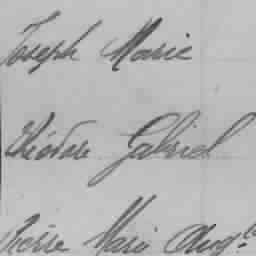 Joseph Marie
Théodore Gabriel
Pierre Marie Aug.te